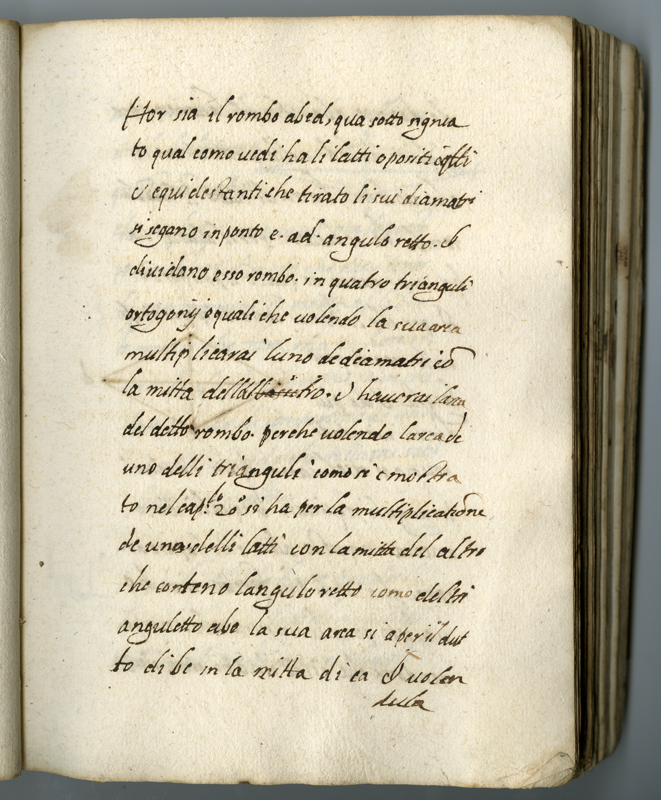 Hor sia il rombo abcd, qua sotto signia
to qual como vedi ha li latti opositi eqlli
e equidestanti che tirato li sui diamatri
si segano in ponto e. ad. angulo retto. e
dividano esso rombo. in quatro trianguli
ortogonij equali che volendo la sua area
multiplicarai luno de deiamatri cō
la mitta dell altro. e haverai larea
del detto rombo. perche volendo larea de
uno delli trianguli como si e mostra
to nel cap.lo 20 si ha per la multiplicatione
de uno delli latti con la mitta del altro
che conteno langulo retto como del tri
anguletto abe la sua area si a per il dut
to di be in la mitta di ea e volen
dula